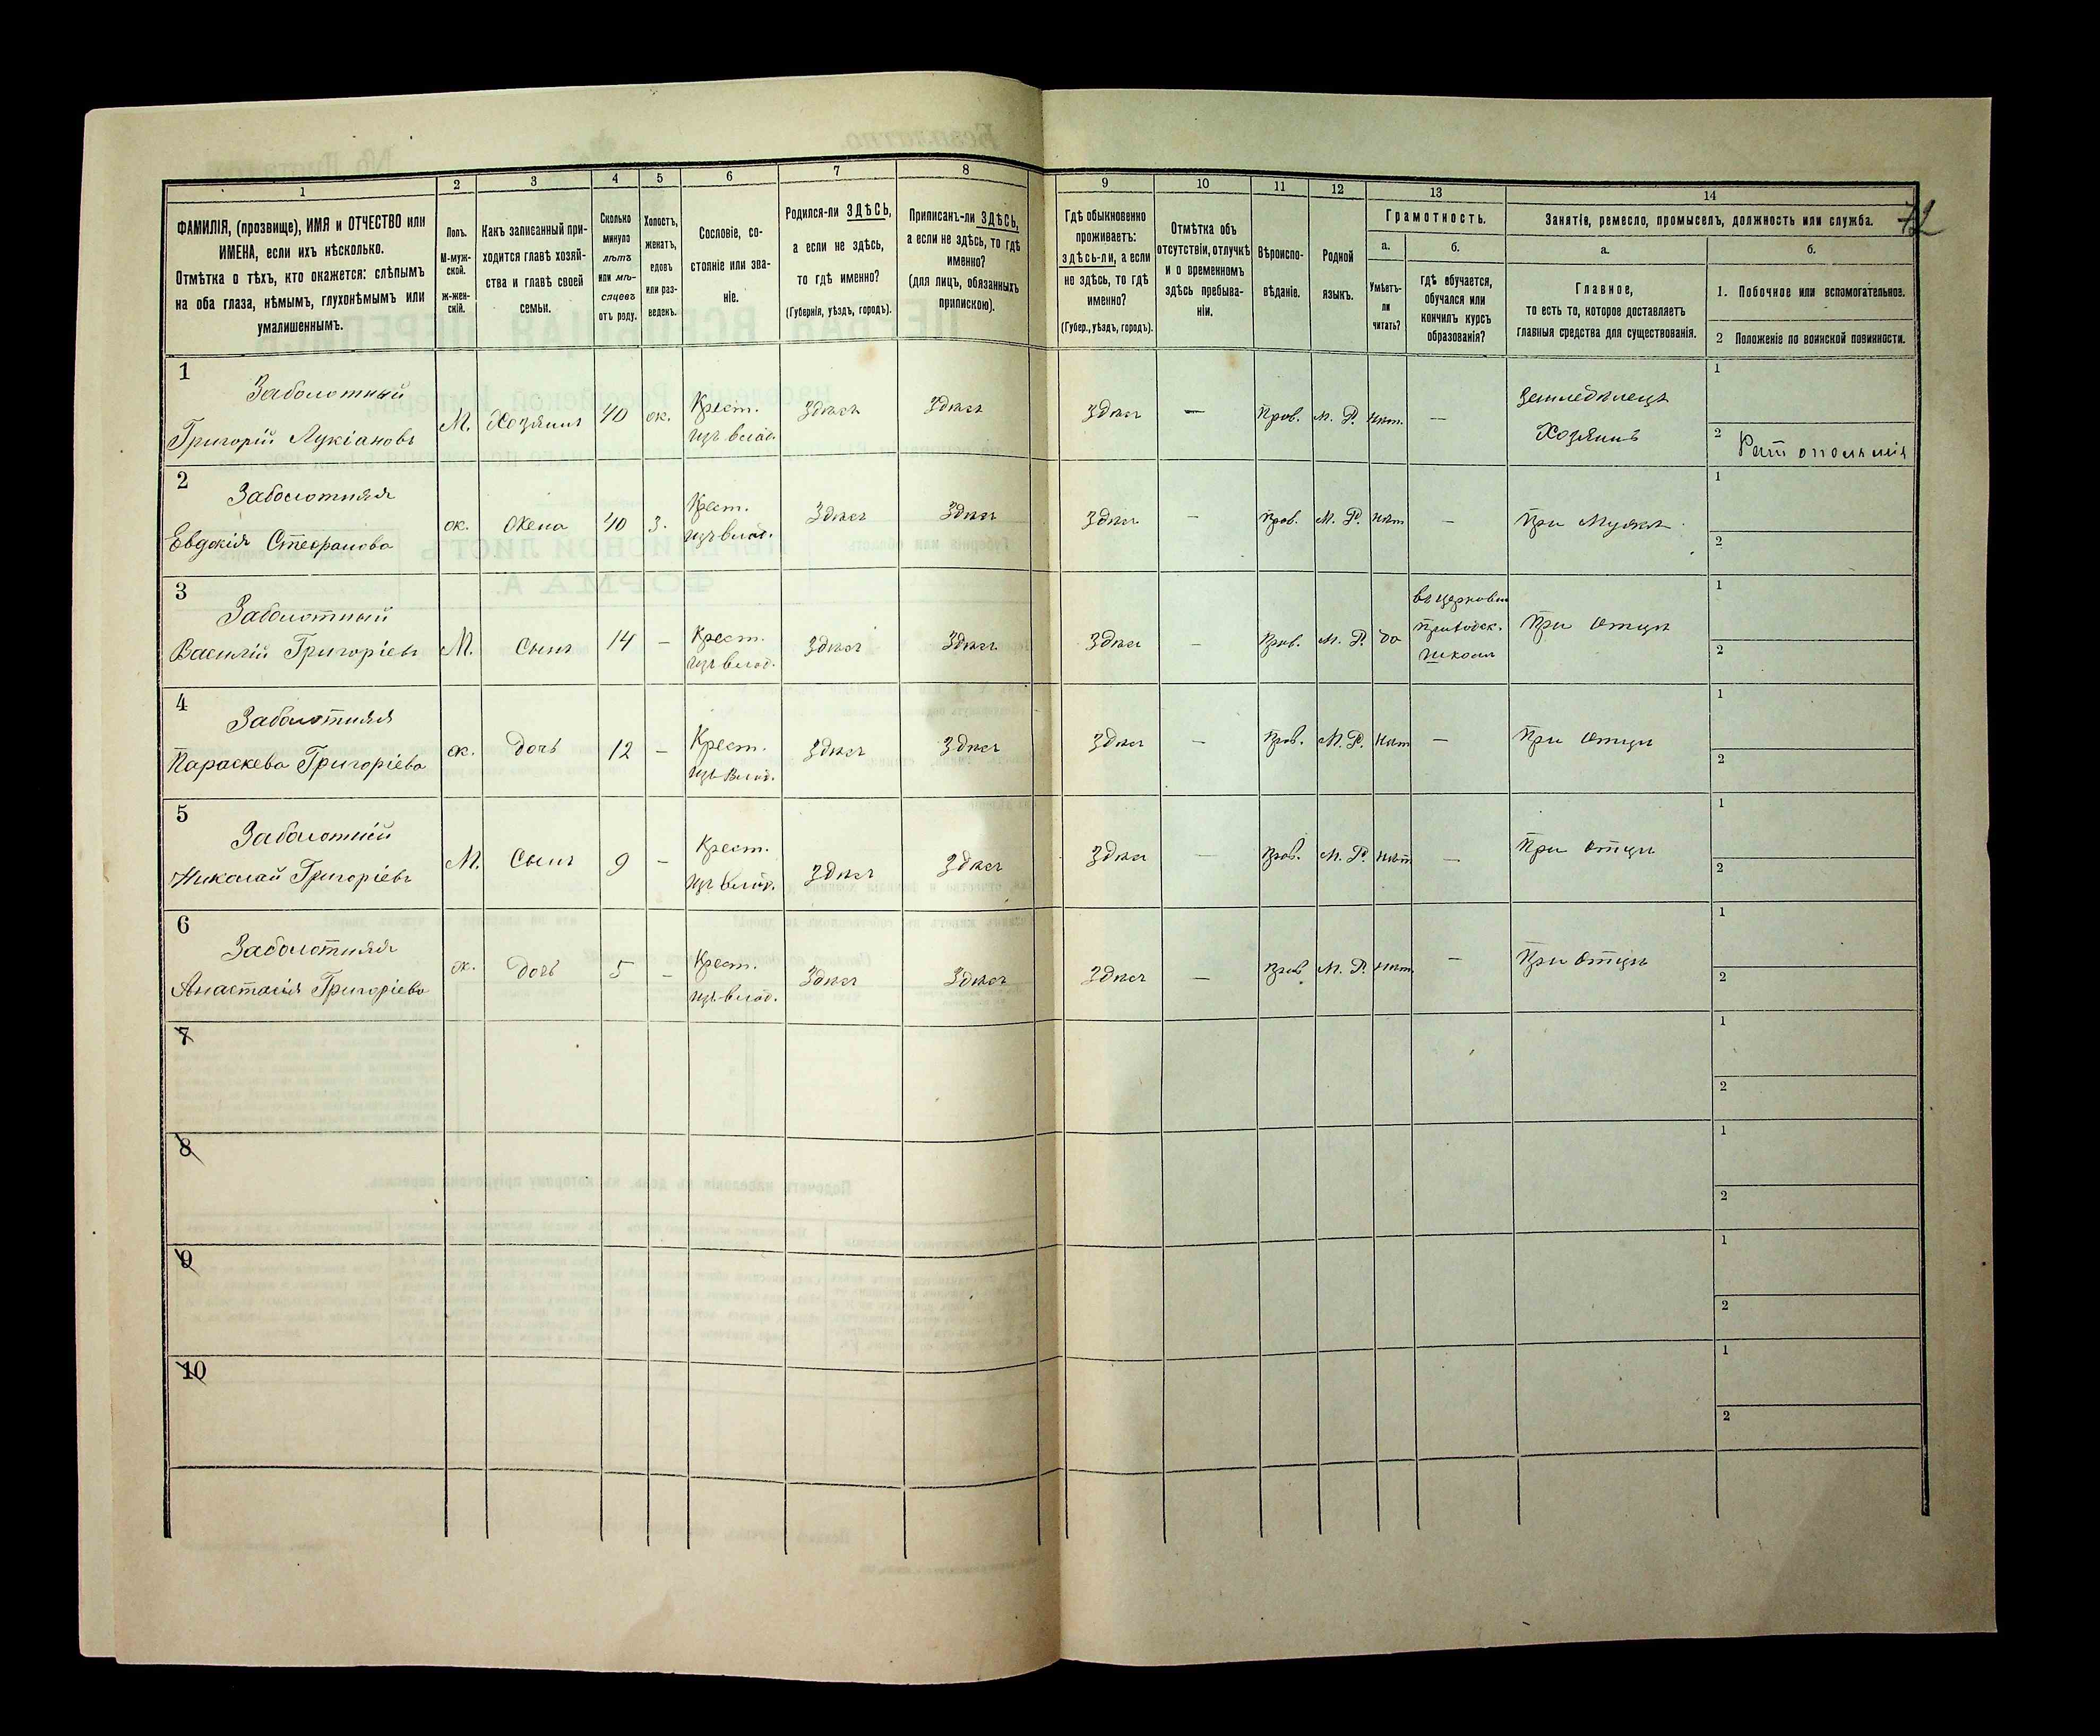 1 2 3 4 5 6 7 8 9 10 11 12 13 14
ФАМИЛІЯ, (прозвище), ИМЯ и ОТЧЕСТВО или
ИМЕНА, если ихъ нѣсколько.
Отмѣтка о тѣхъ, кто окажется: слѣпымъ
на оба глаза, нѣмымъ, глухонѣмымъ или
умалишеннымъ.
Полъ.
М-муж-
ской.
Ж-жен-
скій.
Какъ записанный при-
ходится главѣ хозяй-
ства и главѣ своей
семьи.
Сколько
минуло
лѣтъ
или мѣ-
сяцевъ
отъ роду.
Холостъ,
женатъ,
вдовъ
или раз-
веденъ.
Сословіе, со-
стояніе или зва-
ніе.
Родился-ли ЗДѢСЬ,
а если не здѣсь,
то гдѣ именно?
(Губернія, уѣздъ, городъ).
Приписанъ-ли ЗДѢСЬ,
а если не здѣсь, то гдѣ
именно?
(для лицъ, обязанныхъ
припискою).
Гдѣ обыкновенно
проживаетъ:
здѣсь-ли, а если
не здѣсь, то гдѣ
именно?
(Губер., уѣздъ, городъ).
Отмѣтка объ
отсутствіи, отлучкѣ
и о временномъ
здѣсь пребыва-
ніи.
Вѣроиспо-
вѣданіе.
Родной
языкъ.
Грамотность.
а.
Умѣетъ-
ли
читать?
б.
гдѣ обучается,
обучался или
кончилъ курсъ
образованія?
Занятіе, ремесло, промыселъ, должность или служба.
72
а.
Главное,
то есть то, которое доставляетъ
главныя средства для существованія.
б.
1. Побочное или вспомогательное.
2 Положеніе по воинской повинности.
1
Заболотный
Григорій Лукіановъ
М. Хозяинъ 40 ж. Крест.
изъ влад.
Здѣсь Здѣсь Здѣсь — Прав. М. Р. нѣт. —
Земледѣлецъ
Хозяинъ
1
2 Рат ополченія
2
Заболотняя
Евдокія Стефанова
ж. Жена 40 З. Крест.
изъ влад.
Здѣсь Здѣсь Здѣсь — Прав. М. Р. нѣт — При Мужѣ
1
2
3
Заболотный
Василій Григоріевъ
М. Сынъ 14 — Крест.
изъ влад.
Здѣсь Здѣсь Здѣсь — Прав. М. Р. да
въ церковн
приходск.
школѣ
При Отцѣ
1
2
4
Заболотняя
Параскева Григоріева
ж. Дочь 12 — Крест.
изъ влад.
Здѣсь Здѣсь Здѣсь — Прав. М. Р. нѣт — При Отцѣ
1
2
5
Заболотній
Николай Григоріевъ
М. Сынъ 9 — Крест.
изъ влад.
Здѣсь Здѣсь Здѣсь — Прав. М. Р. нѣт — При Отцѣ
1
2
6
Заболотняя
Анастасія Григоріева
ж. Дочь 5 — Крест.
изъ влад.
Здѣсь Здѣсь Здѣсь — Прав М. Р. нѣт. — При Отцѣ
1
2
7
1
2
8
1
2
9
1
2
10
1
2